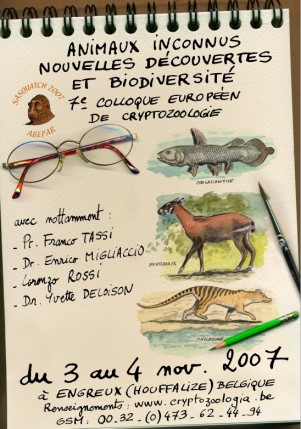 ANIMAUX INCONNUS
NOUVELLES DÉCOUVERTES
ET BIODIVERSITÉ
7e COLLOQUE EUROPÉEN
DE CRYPTOZOOLOGIE
SASQUATCH 2007
ABEPAR
COELACANTHE
avec nottamment :
- Pr. Franco TASSI
- Dr. Enrico MIGLIACCIO
- Lorenzo ROSSI
- Dr. Yvette DELOISON
THYLACINE
du 3 au 4 nov. 2007
à ENGREUX (HOUFFALIZE) BELGIQUE
Renseignements : www.cryptozoologia.be
GSM : 00.32-(0)473-62-44-94